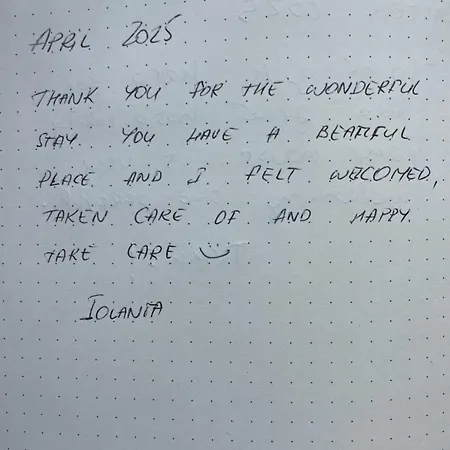 APRIL 2025
THANK YOU FOR THE WONDERFUL
STAY. YOU HAVE A BEATIFUL
PLACE AND I FELT WELCOMED,
TAKEN CARE OF AND HAPPY.
TAKE CARE
IOLANTA